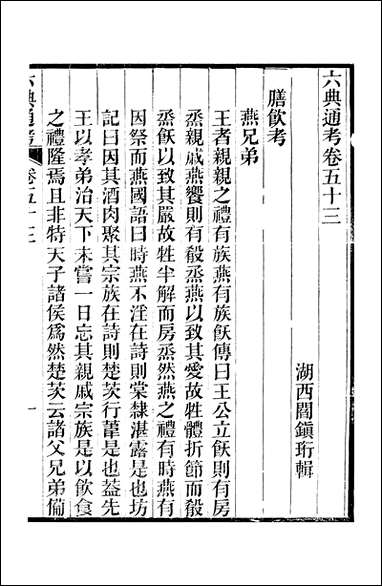 六典通考卷五十三
湖西閻鎭珩輯
膳飲考
燕兄弟
王者親親之禮有族燕有族飫傳曰王公立飫則有房
烝親戚燕饗則有殽烝燕以致其愛故牲體折節而殽
烝飫以致其嚴故牲半解而房烝然燕之禮有時燕有
因祭而燕國語曰時燕不淫在詩則棠隸湛露是也坊
記曰因其酒肉聚其宗族在詩則楚茨行葦是也葢先
王以孝弟治天下未嘗一日忘其親戚宗族是以飲食
之禮隆焉且非特天子諸侯爲然楚茨云諸父兄弟僃
六典通考
卷五十三
一